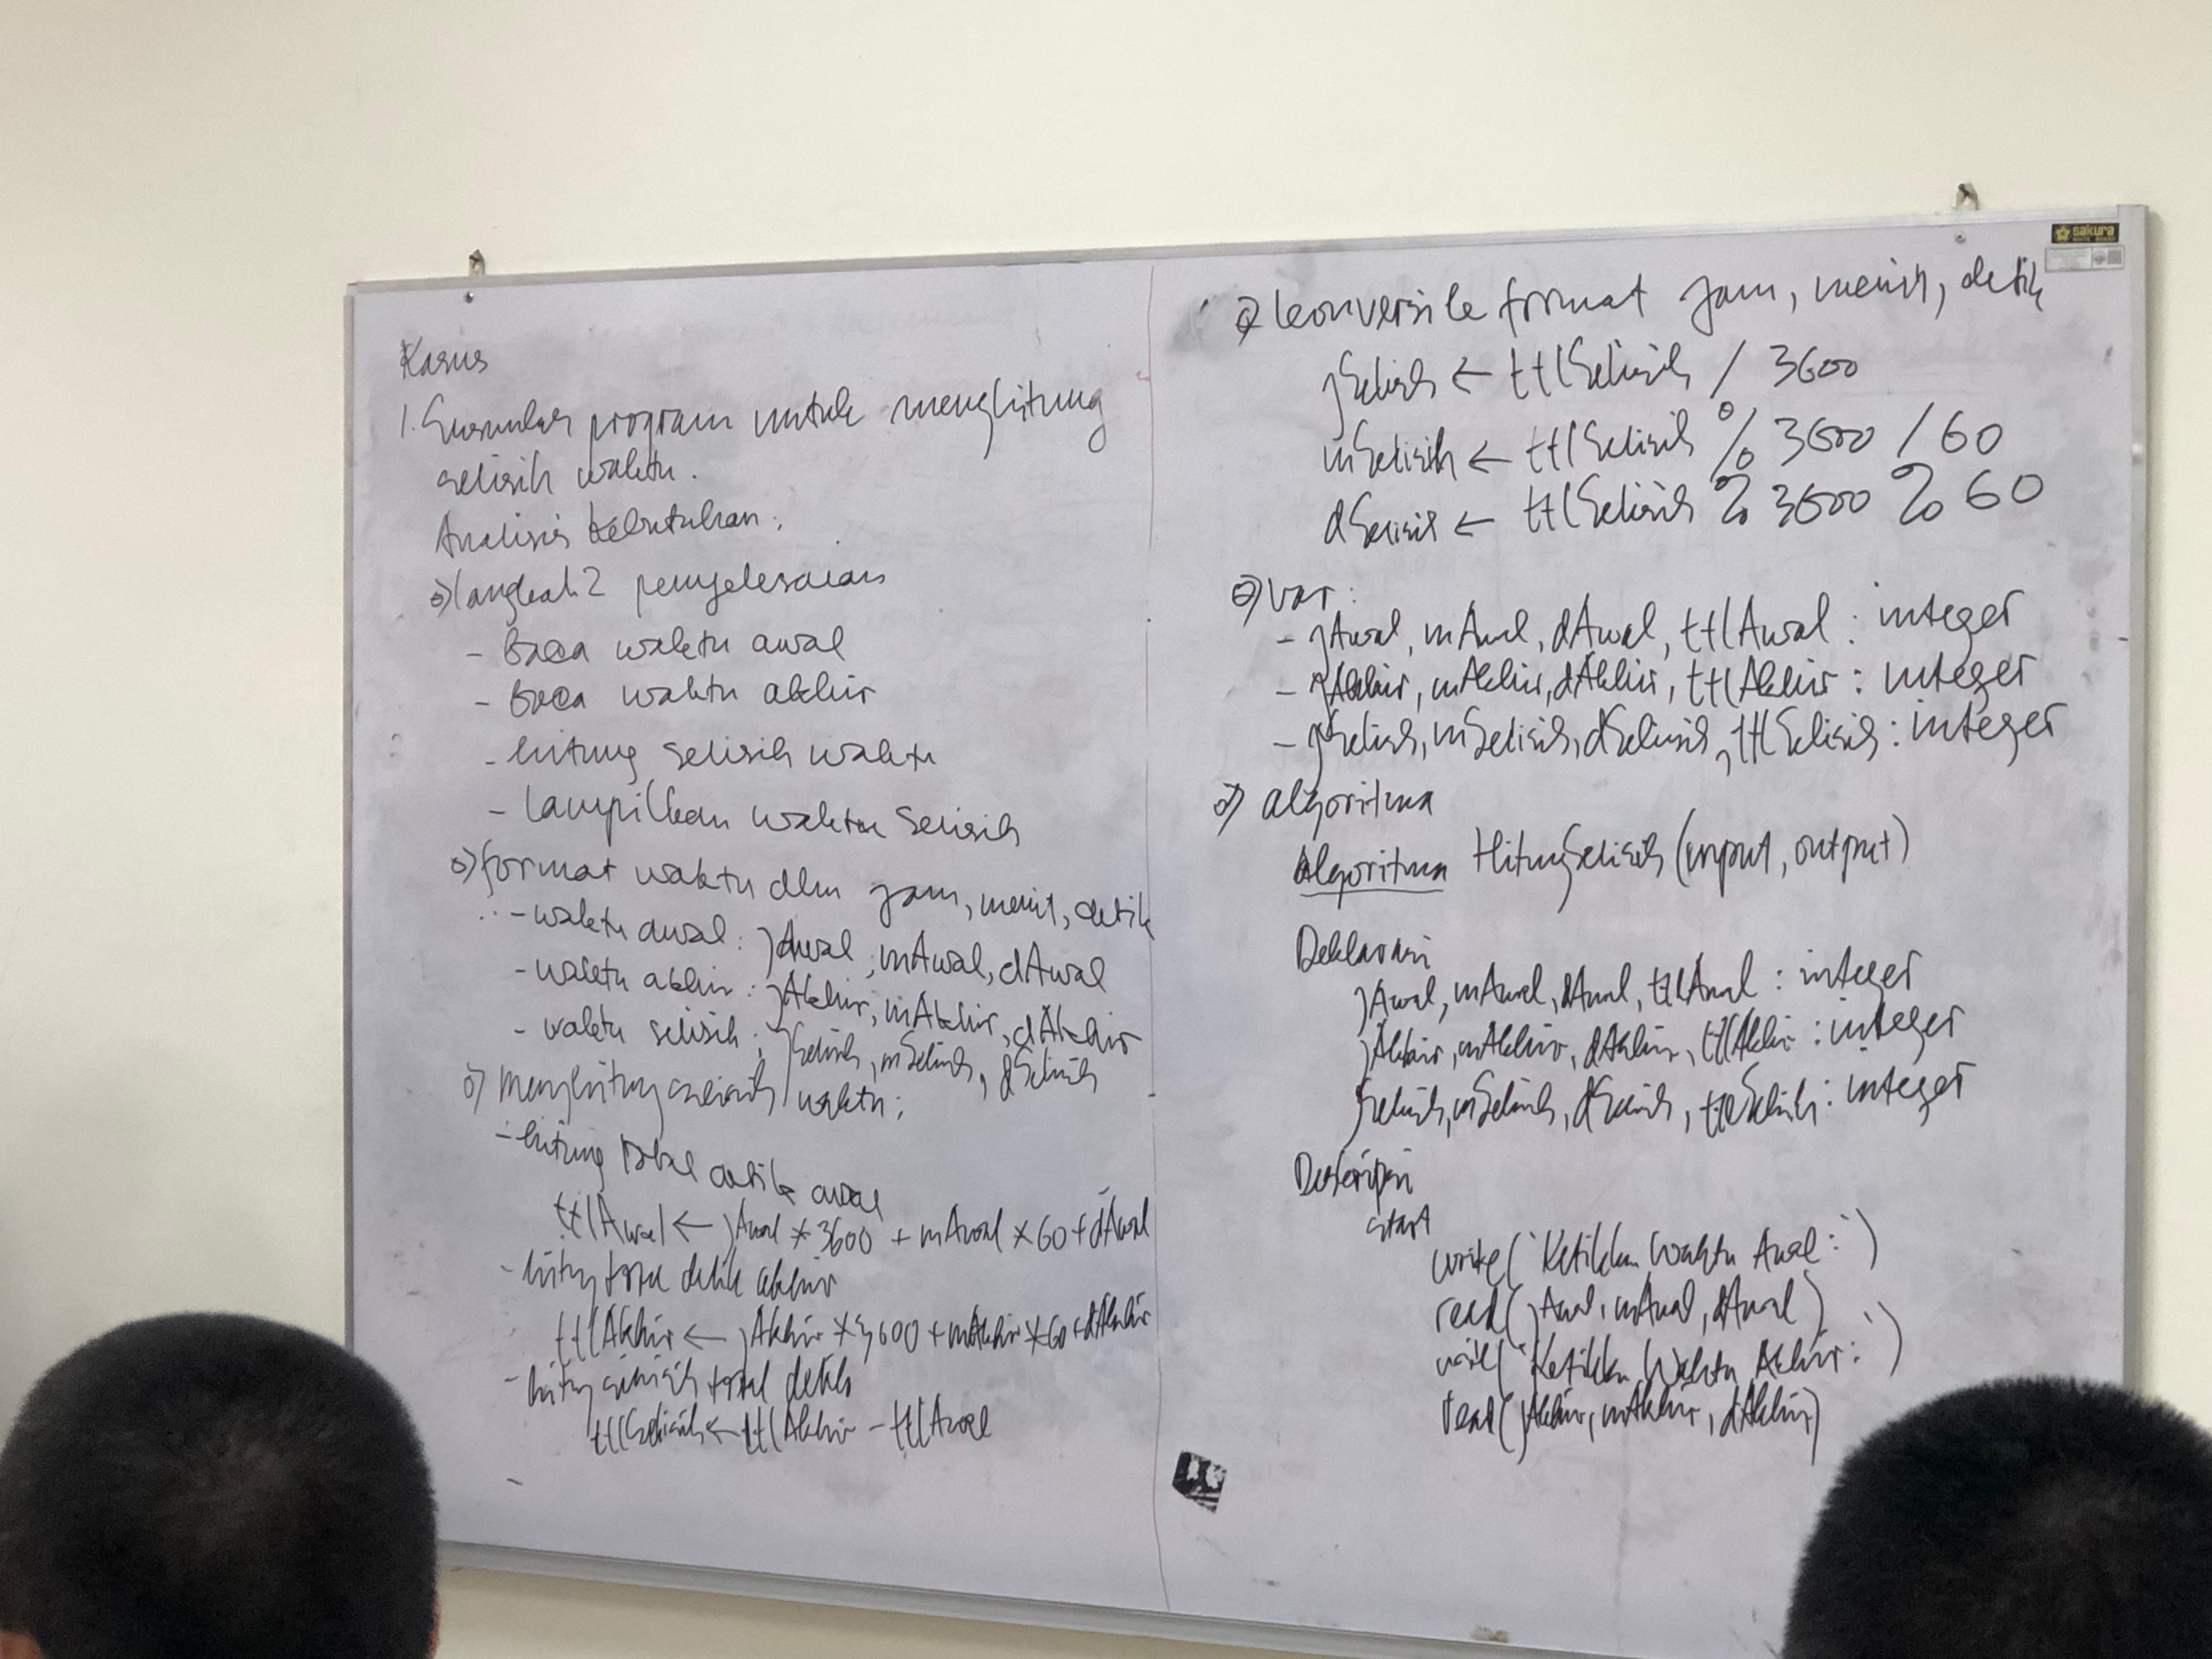 Kasus
1. Susunlah program untuk menghitung
selisih waktu.
Analisis kebutuhan:
o) langkah2 penyelesaian
- Baca waktu awal
- Baca waktu akhir
- hitung selisih waktu
- tampilkan waktu selisih
o) format waktu dlm jam, menit, detik
- waktu awal : jAwal, mAwal, dAwal
- waktu akhir : jAkhir, mAkhir, dAkhir
- waktu selisih : jSelisih, mSelisih, dSelisih
o) menghitung selisih waktu:
- hitung total detik awal
ttlAwal ← jAwal * 3600 + mAwal * 60 + dAwal
- hitung total detik akhir
ttlAkhir ← jAkhir * 3600 + mAkhir * 60 + dAkhir
- hitung selisih total detik
ttlSelisih ← ttlAkhir - ttlAwal
-
o) konversi ke format jam, menit, detik
jSelisih ← ttlSelisih / 3600
mSelisih ← ttlSelisih % 3600 / 60
dSelisih ← ttlSelisih % 3600 % 60
o) var :
- jAwal, mAwal, dAwal, ttlAwal : integer
- jAkhir, mAkhir, dAkhir, ttlAkhir : integer
- jSelisih, mSelisih, dSelisih, ttlSelisih : integer
o) algoritma
Algoritma HitungSelisih (input, output)
Deklarasi
jAwal, mAwal, dAwal, ttlAwal : integer
jAkhir, mAkhir, dAkhir, ttlAkhir : integer
jSelisih, mSelisih, dSelisih, ttlSelisih : integer
Deskripsi
start
write('Ketikkan Waktu Awal : ')
read(jAwal, mAwal, dAwal)
write('Ketikkan Waktu Akhir : ')
read(jAkhir, mAkhir, dAkhir)
sakura